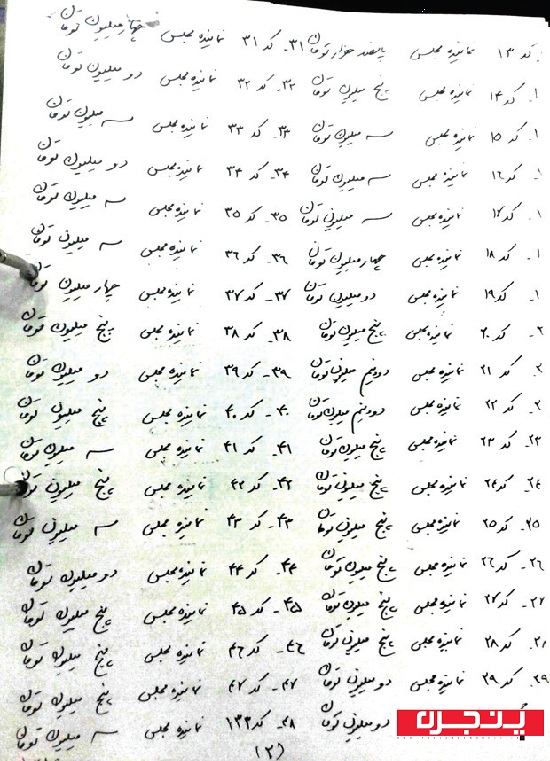 کد ۱۳ نماینده مجلس پانصد هزار تومان ۳۱- کد ۳۱ نماینده مجلس چهار میلیون تومان
کد ۱۴ نماینده مجلس پنج میلیون تومان ۳۲- کد ۳۲ نماینده مجلس دو میلیون تومان
کد ۱۵ نماینده مجلس سه میلیون تومان ۳۳- کد ۳۳ نماینده مجلس سه میلیون تومان
کد ۱۶ نماینده مجلس سه میلیون تومان ۳۴- کد ۳۴ نماینده مجلس دو میلیون تومان
کد ۱۷ نماینده مجلس سه میلیون تومان ۳۵- کد ۳۵ نماینده مجلس سه میلیون تومان
کد ۱۸ نماینده مجلس چهار میلیون تومان ۳۶- کد ۳۶ نماینده مجلس سه میلیون تومان
کد ۱۹ نماینده مجلس دو میلیون تومان ۳۷- کد ۳۷ نماینده مجلس چهار میلیون تومان
کد ۲۰ نماینده مجلس پنج میلیون تومان ۳۸- کد ۳۸ نماینده مجلس پنج میلیون تومان
کد ۲۱ نماینده مجلس دو و نیم میلیون تومان ۳۹- کد ۳۹ نماینده مجلس دو میلیون تومان
کد ۲۲ نماینده مجلس دو و نیم میلیون تومان ۴۰- کد ۴۰ نماینده مجلس پنج میلیون تومان
۲۳- کد ۲۳ نماینده مجلس پنج میلیون تومان ۴۱- کد ۴۱ نماینده مجلس سه میلیون تومان
۲۴- کد ۲۴ نماینده مجلس پنج میلیون تومان ۴۲- کد ۴۲ نماینده مجلس پنج میلیون تومان
۲۵- کد ۲۵ نماینده مجلس پنج میلیون تومان ۴۳- کد ۴۳ نماینده مجلس سه میلیون تومان
۲۶- کد ۲۶ نماینده مجلس پنج میلیون تومان ۴۴- کد ۴۴ نماینده مجلس دو میلیون تومان
۲۷- کد ۲۷ نماینده مجلس پنج میلیون تومان ۴۵- کد ۴۵ نماینده مجلس پنج میلیون تومان
۲۸- کد ۲۸ نماینده مجلس پنج میلیون تومان ۴۶- کد ۴۶ نماینده مجلس پنج میلیون تومان
۲۹- کد ۲۹ نماینده مجلس دو میلیون تومان ۴۷- کد ۴۷ نماینده مجلس پنج میلیون تومان
دو میلیون تومان ۴۸- کد ۱۳۳ نماینده مجلس سه میلیون تومان
پنجره
(۲)